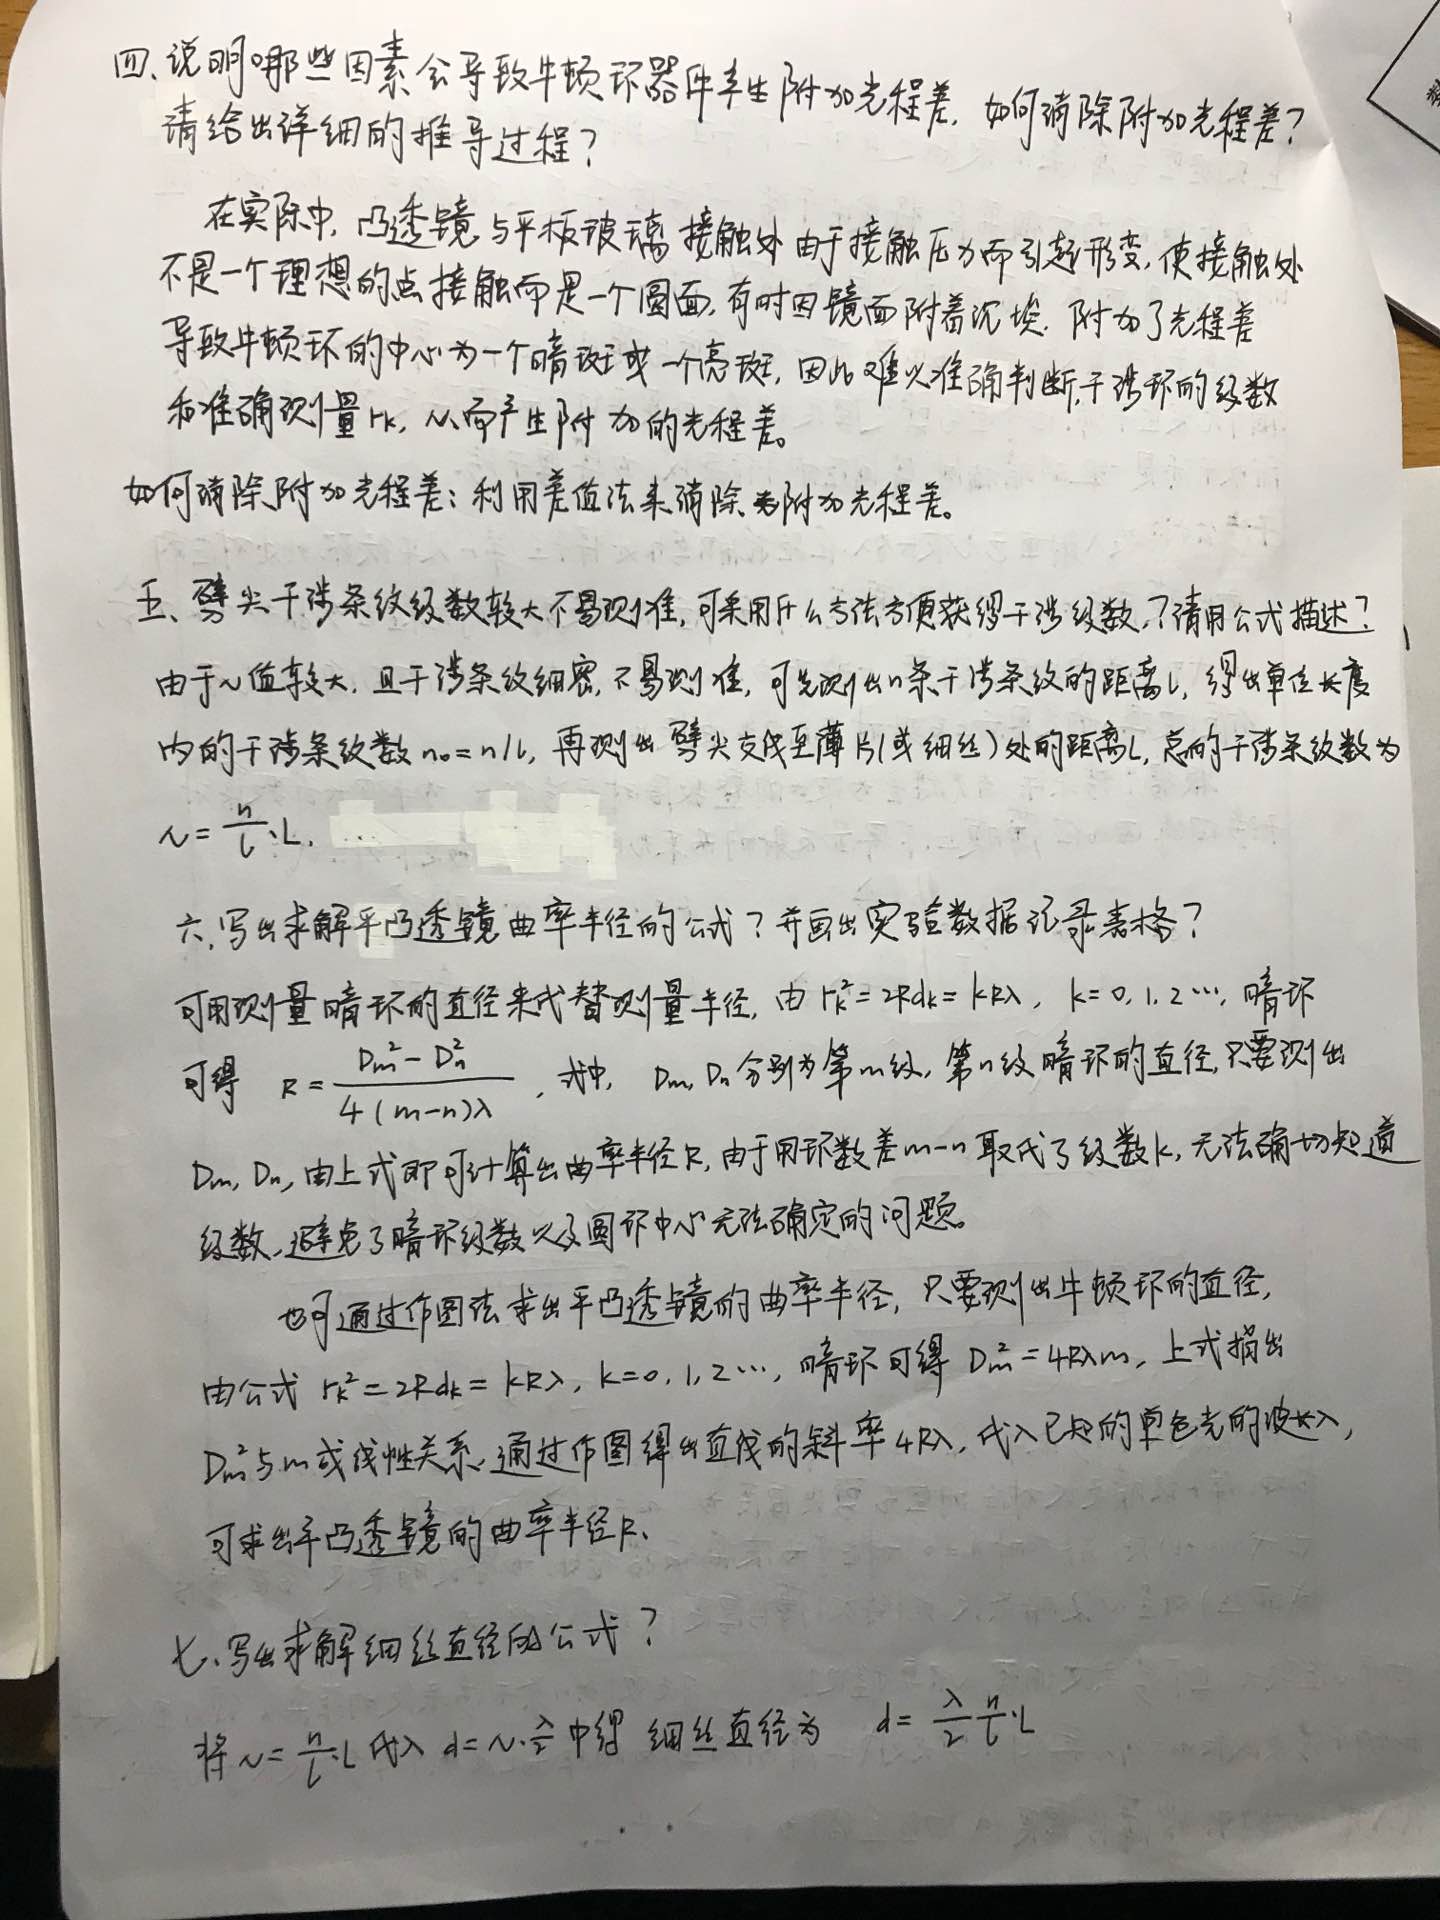 四、说明哪些因素会导致牛顿环器件产生附加光程差，如何消除附加光程差？
请给出详细的推导过程？
在实际中，凸透镜与平板玻璃接触处由于接触压力而引起形变，使接触处
不是一个理想的点接触而是一个圆面，有时因镜面附着沉埃，附加了光程差
导致牛顿环的中心为一个暗斑或一个亮斑，因此难以准确判断干涉环的级数
和准确测量rk，从而产生附加的光程差。
如何消除附加光程差：利用差值法来消除附加光程差。
五、劈尖干涉条纹级数较大不易测准，可采用什么方法方便获得干涉级数，？请用公式描述？
由于N值较大，且干涉条纹细密，不易测准，可先测出n条干涉条纹的距离l，得出单位长度
内的干涉条纹数n₀=n/l，再测出劈尖交线至薄片(或细丝)处的距离L，总的干涉条纹数为
N=n/l·L. ...
六、写出求解平凸透镜曲率半径的公式？并画出实验数据记录表格？
可用测量暗环的直径来代替测量半径，由 rk²=2Rdk=kRλ, k=0,1,2…, 暗环
可得 R=(Dm²-Dn²)/4(m-n)λ，式中，Dm, Dn分别为第m级，第n级暗环的直径，只要测出
Dm, Dn，由上式即可计算出曲率半径R，由于用环数差m-n取代了级数k，无法确切知道
级数，避免了暗环级数以及圆环中心无法确定的问题。
也可通过作图法求出平凸透镜的曲率半径，只要测出牛顿环的直径，
由公式 rk²=2Rdk=kRλ, k=0,1,2…, 暗环可得 Dm²=4Rλm，上式指出
Dm²与m成线性关系，通过作图得出直线的斜率4Rλ，代入已知的单色光的波长λ，
可求出平凸透镜的曲率半径R、
七、写出求解细丝直径的公式？
将N=n/l·L代入d=N·λ/2中得 细丝直径为 d=λ/2 n/l·L